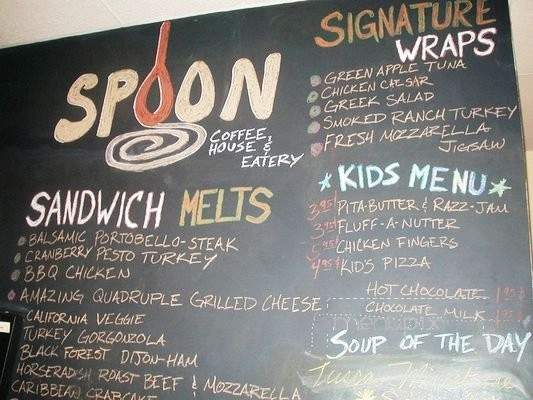 SPOON
COFFEE
HOUSE &
EATERY
SANDWICH MELTS
BALSAMIC PORTOBELLO-STEAK
CRANBERRY PESTO TURKEY
BBQ CHICKEN
AMAZING QUADRUPLE GRILLED CHEESE
CALIFORNIA VEGGIE
TURKEY GORGONZOLA
BLACK FOREST DIJON-HAM
HORSERADISH ROAST BEEF & MOZZARELLA
CARIBBEAN CRABCAKE
SIGNATURE
WRAPS
GREEN APPLE TUNA
CHICKEN CAESAR
GREEK SALAD
SMOKED RANCH TURKEY
FRESH MOZZARELLA
JIGSAW
KIDS MENU
3.95 PITA-BUTTER & RAZZ-JAM
3.95 FLUFF-A-NUTTER
5.95 CHICKEN FINGERS
4.95 KID'S PIZZA
HOT CHOCOLATE 1.95
CHOCOLATE MILK 1.95
SOUP OF THE DAY